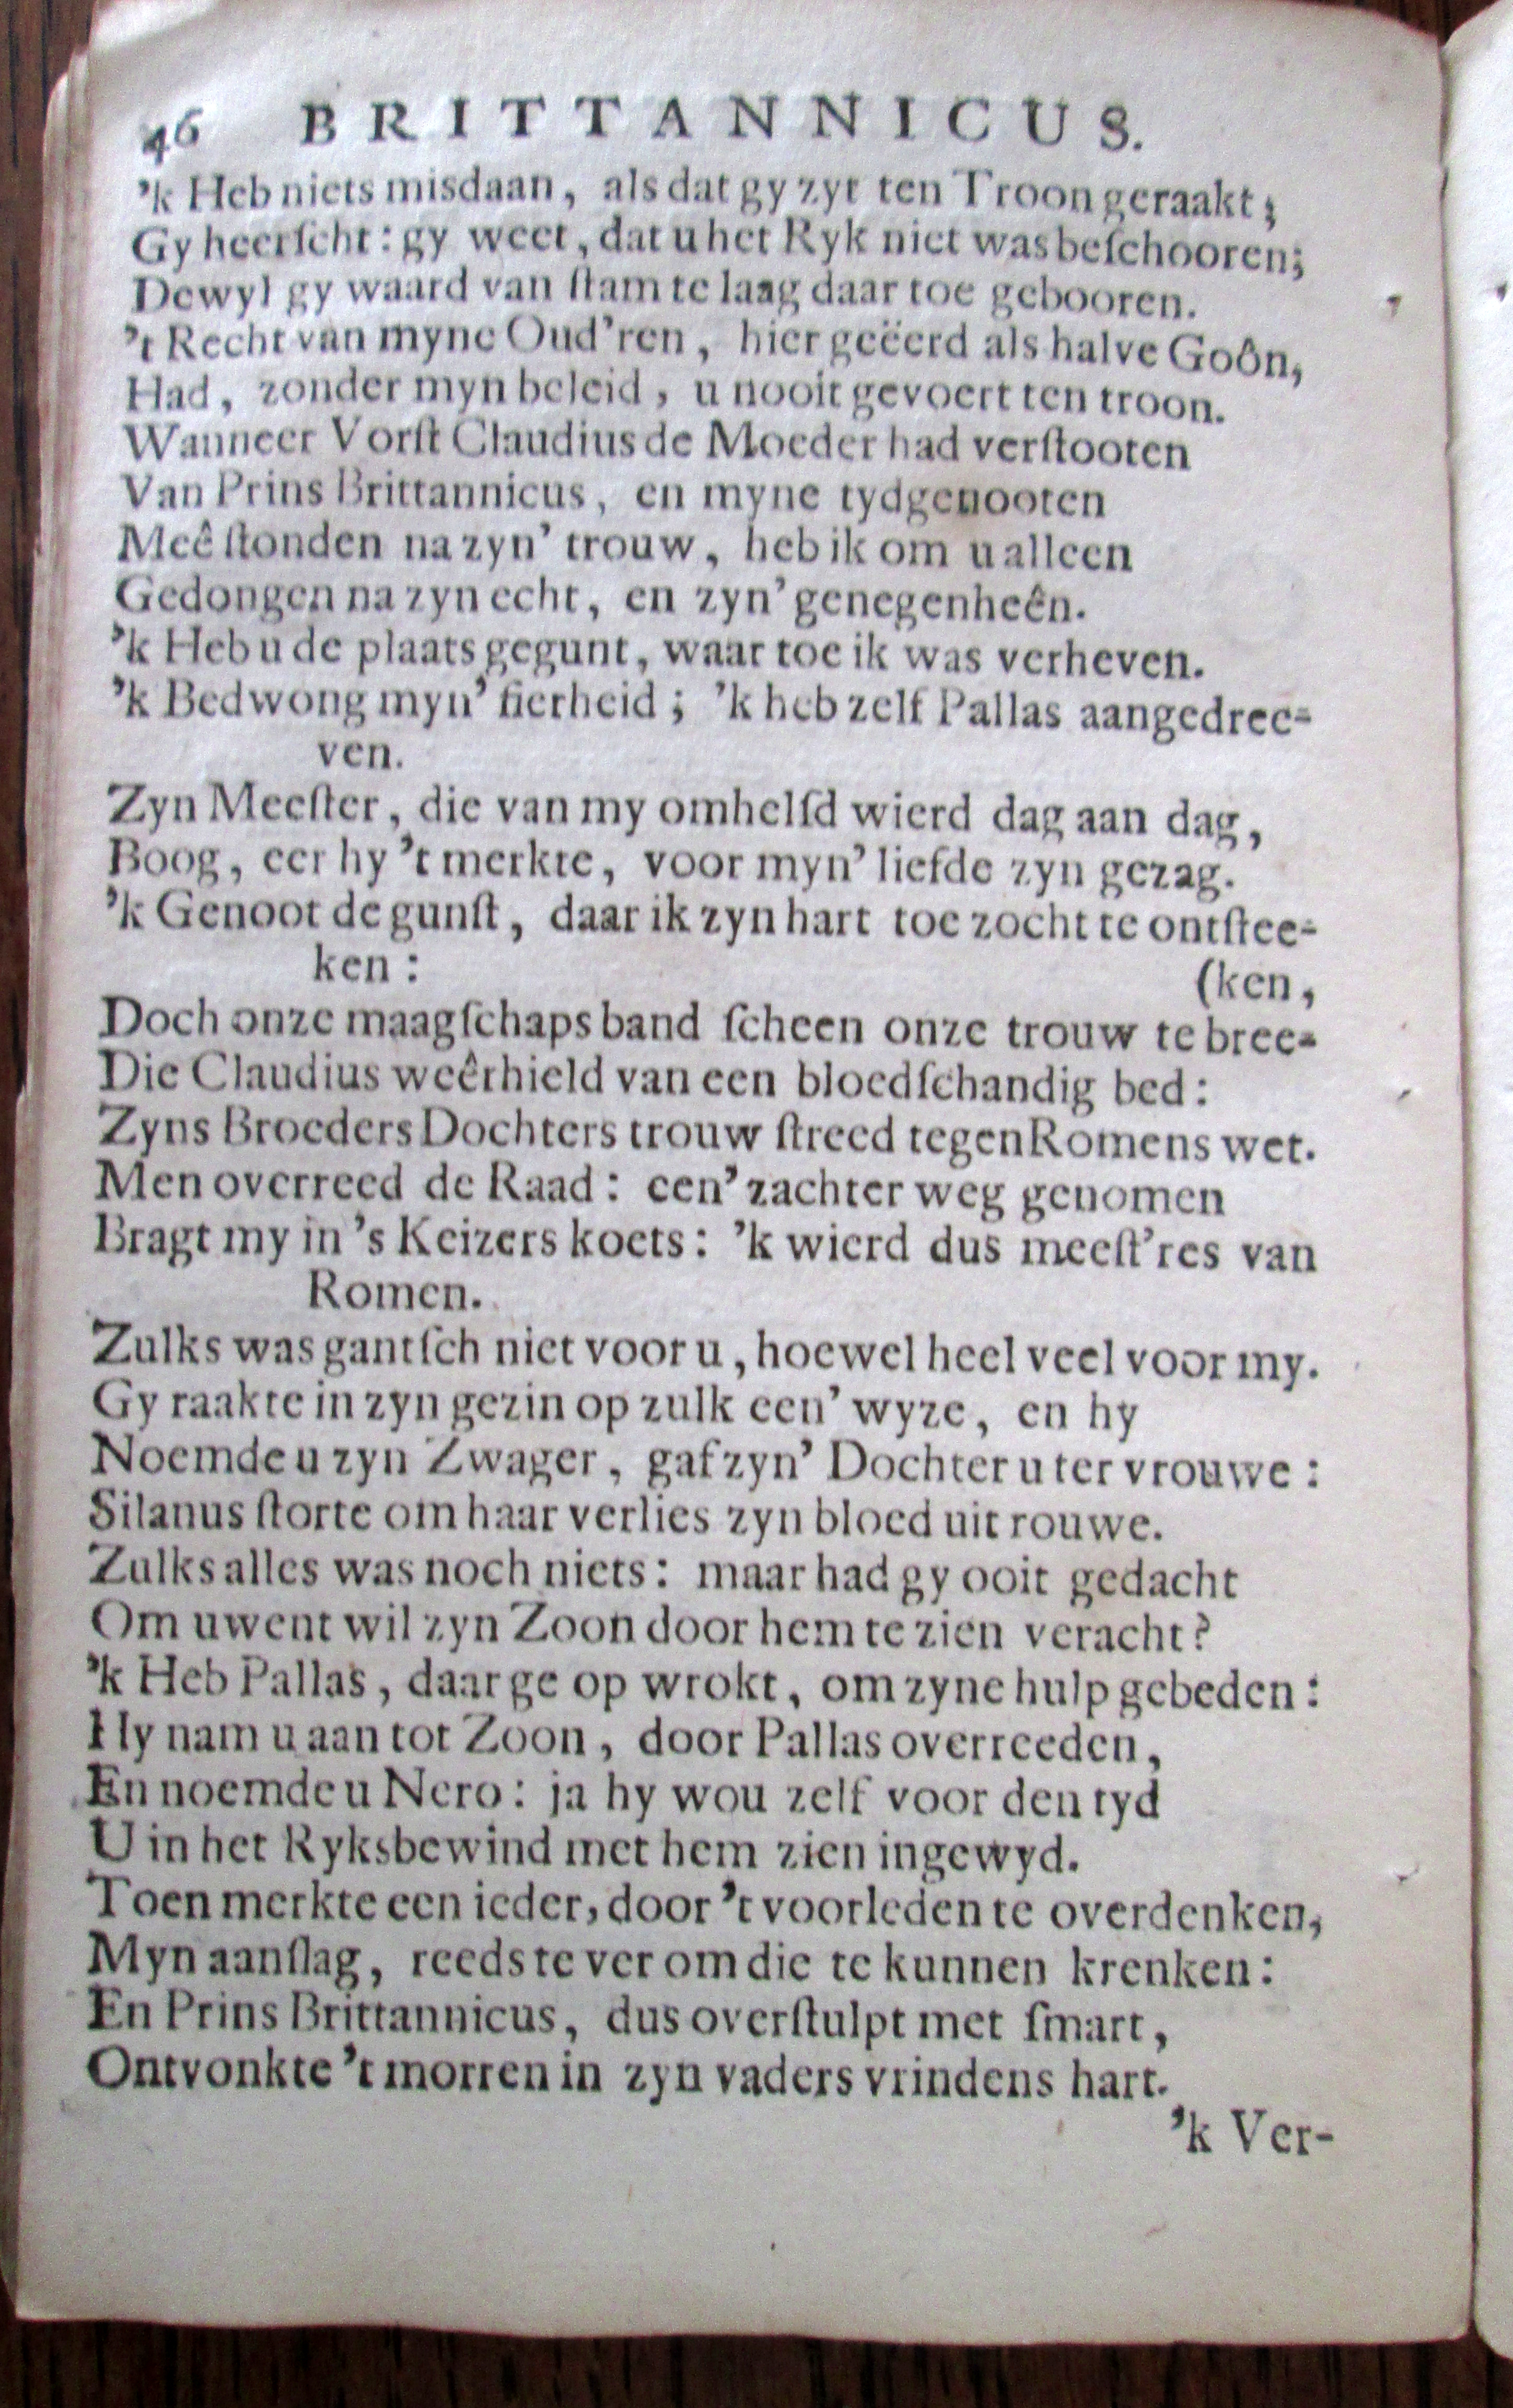 46 BRITTANNICUS.
'k Heb niets misdaan, als dat gy zyt ten Troon geraakt;
Gy heerſcht: gy weet, dat u het Ryk niet was beſchooren;
Dewyl gy waard van ſtam te laag daar toe gebooren.
't Recht van myne Oud'ren, hier geëerd als halve Goôn,
Had, zonder myn beleid, u nooit gevoert ten troon.
Wanneer Vorſt Claudius de Moeder had verſtooten
Van Prins Brittannicus, en myne tydgenooten
Meê ſtonden na zyn' trouw, heb ik om u alleen
Gedongen na zyn echt, en zyn' genegenheên.
'k Heb u de plaats gegunt, waar toe ik was verheven.
'k Bedwong myn' fierheid; 'k heb zelf Pallas aangedree-
ven.
Zyn Meeſter, die van my omhelſd wierd dag aan dag,
Boog, eer hy 't merkte, voor myn' liefde zyn gezag.
'k Genoot de gunſt, daar ik zyn hart toe zocht te ontſtee-
ken: (ken,
Doch onze maagſchaps band ſcheen onze trouw te bree-
Die Claudius weêrhield van een bloedſchandig bed:
Zyns Broeders Dochters trouw ſtreed tegen Romens wet.
Men overreed de Raad: een' zachter weg genomen
Bragt my in 's Keizers koets: 'k wierd dus meeſt'res van
Romen.
Zulks was gantſch niet voor u, hoewel heel veel voor my.
Gy raakte in zyn gezin op zulk een' wyze, en hy
Noemde u zyn Zwager, gaf zyn' Dochter u ter vrouwe:
Silanus ſtorte om haar verlies zyn bloed uit rouwe.
Zulks alles was noch niets: maar had gy ooit gedacht
Om uwent wil zyn Zoon door hem te zien veracht?
'k Heb Pallas, daar ge op wrokt, om zyne hulp gebeden:
Hy nam u aan tot Zoon, door Pallas overreeden,
En noemde u Nero: ja hy wou zelf voor den tyd
U in het Ryksbewind met hem zien ingewyd.
Toen merkte een ieder, door 't voorleden te overdenken,
Myn aanſlag, reeds te ver om die te kunnen krenken:
En Prins Brittannicus, dus overſtulpt met ſmart,
Ontvonkte 't morren in zyn vaders vrindens hart.
'k Ver-